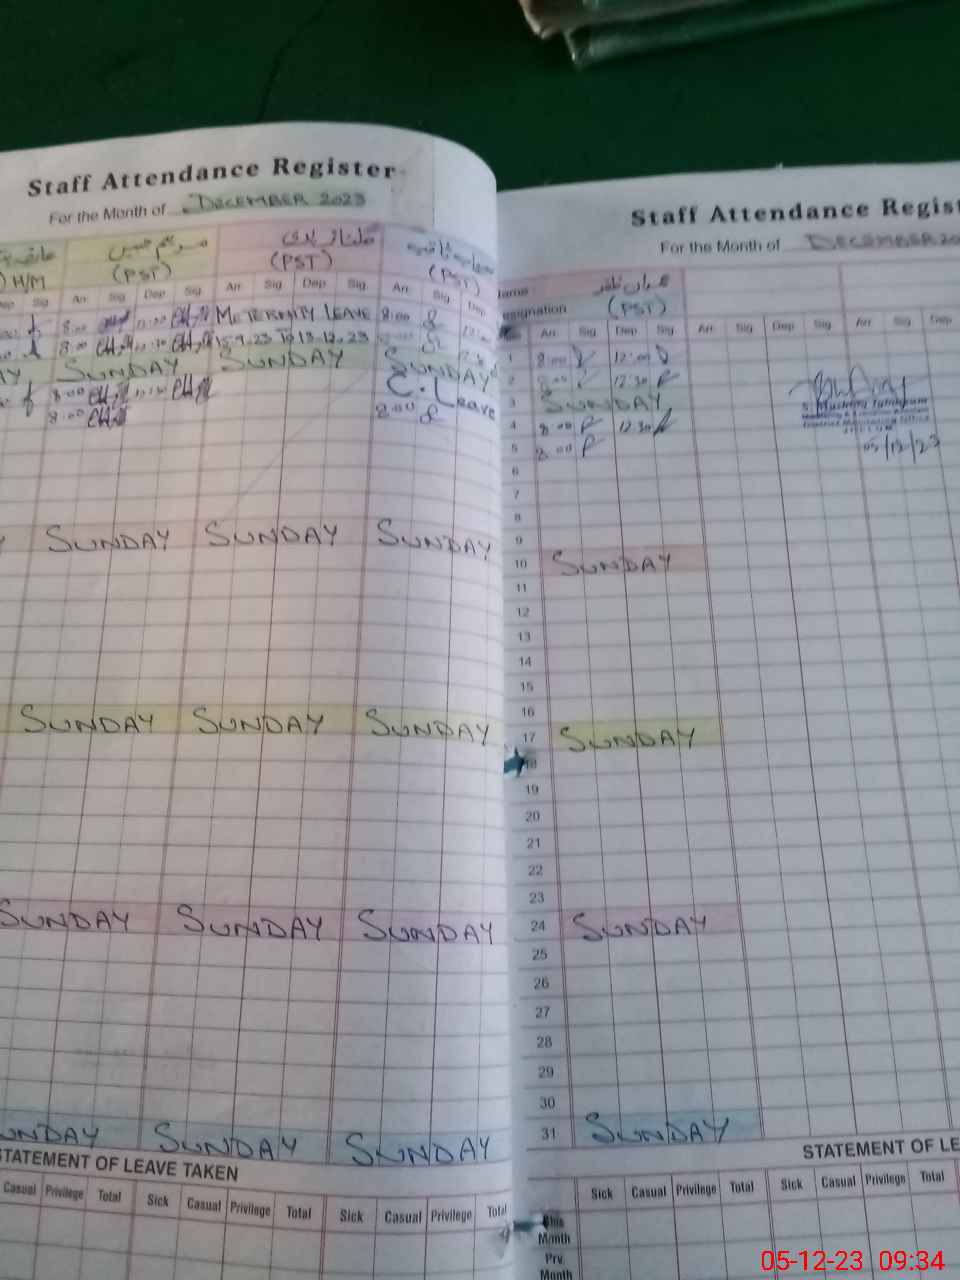 Staff Attendance Register
For the Month of DECEMBER 2023
H/M (PST) (PST) (PST)
Sig Arr Sig Dep Sig Arr Sig Dep Sig Arr Sig Dep
8:00 11:00 METERNITY LEAVE 8:00
8:00 11:30 15.9.23 TO 13.12.23
SUNDAY SUNDAY SUNDAY
8:00 11:30 C. Leave
8:00 8:00
SUNDAY SUNDAY SUNDAY
SUNDAY SUNDAY SUNDAY
SUNDAY SUNDAY SUNDAY
SUNDAY SUNDAY SUNDAY
STATEMENT OF LEAVE TAKEN
Casual Privilege Total Sick Casual Privilege Total Sick Casual Privilege Total
Staff Attendance Regist
For the Month of DECEMBER 20
(PST)
Arr Sig Dep Sig Arr Sig Dep Sig Arr Sig Dep
1 8:00 12:00
2 8:00 12:30
3 SUNDAY
4 8:00 12:30
5 8:00
05/12/23
6
7
8
9
10 SUNDAY
11
12
13
14
15
16
17 SUNDAY
18
19
20
21
22
23
24 SUNDAY
25
26
27
28
29
30
31 SUNDAY
STATEMENT OF LE
Sick Casual Privilege Total Sick Casual Privilege Total
This Month
Prv. Month
05-12-23 09:34